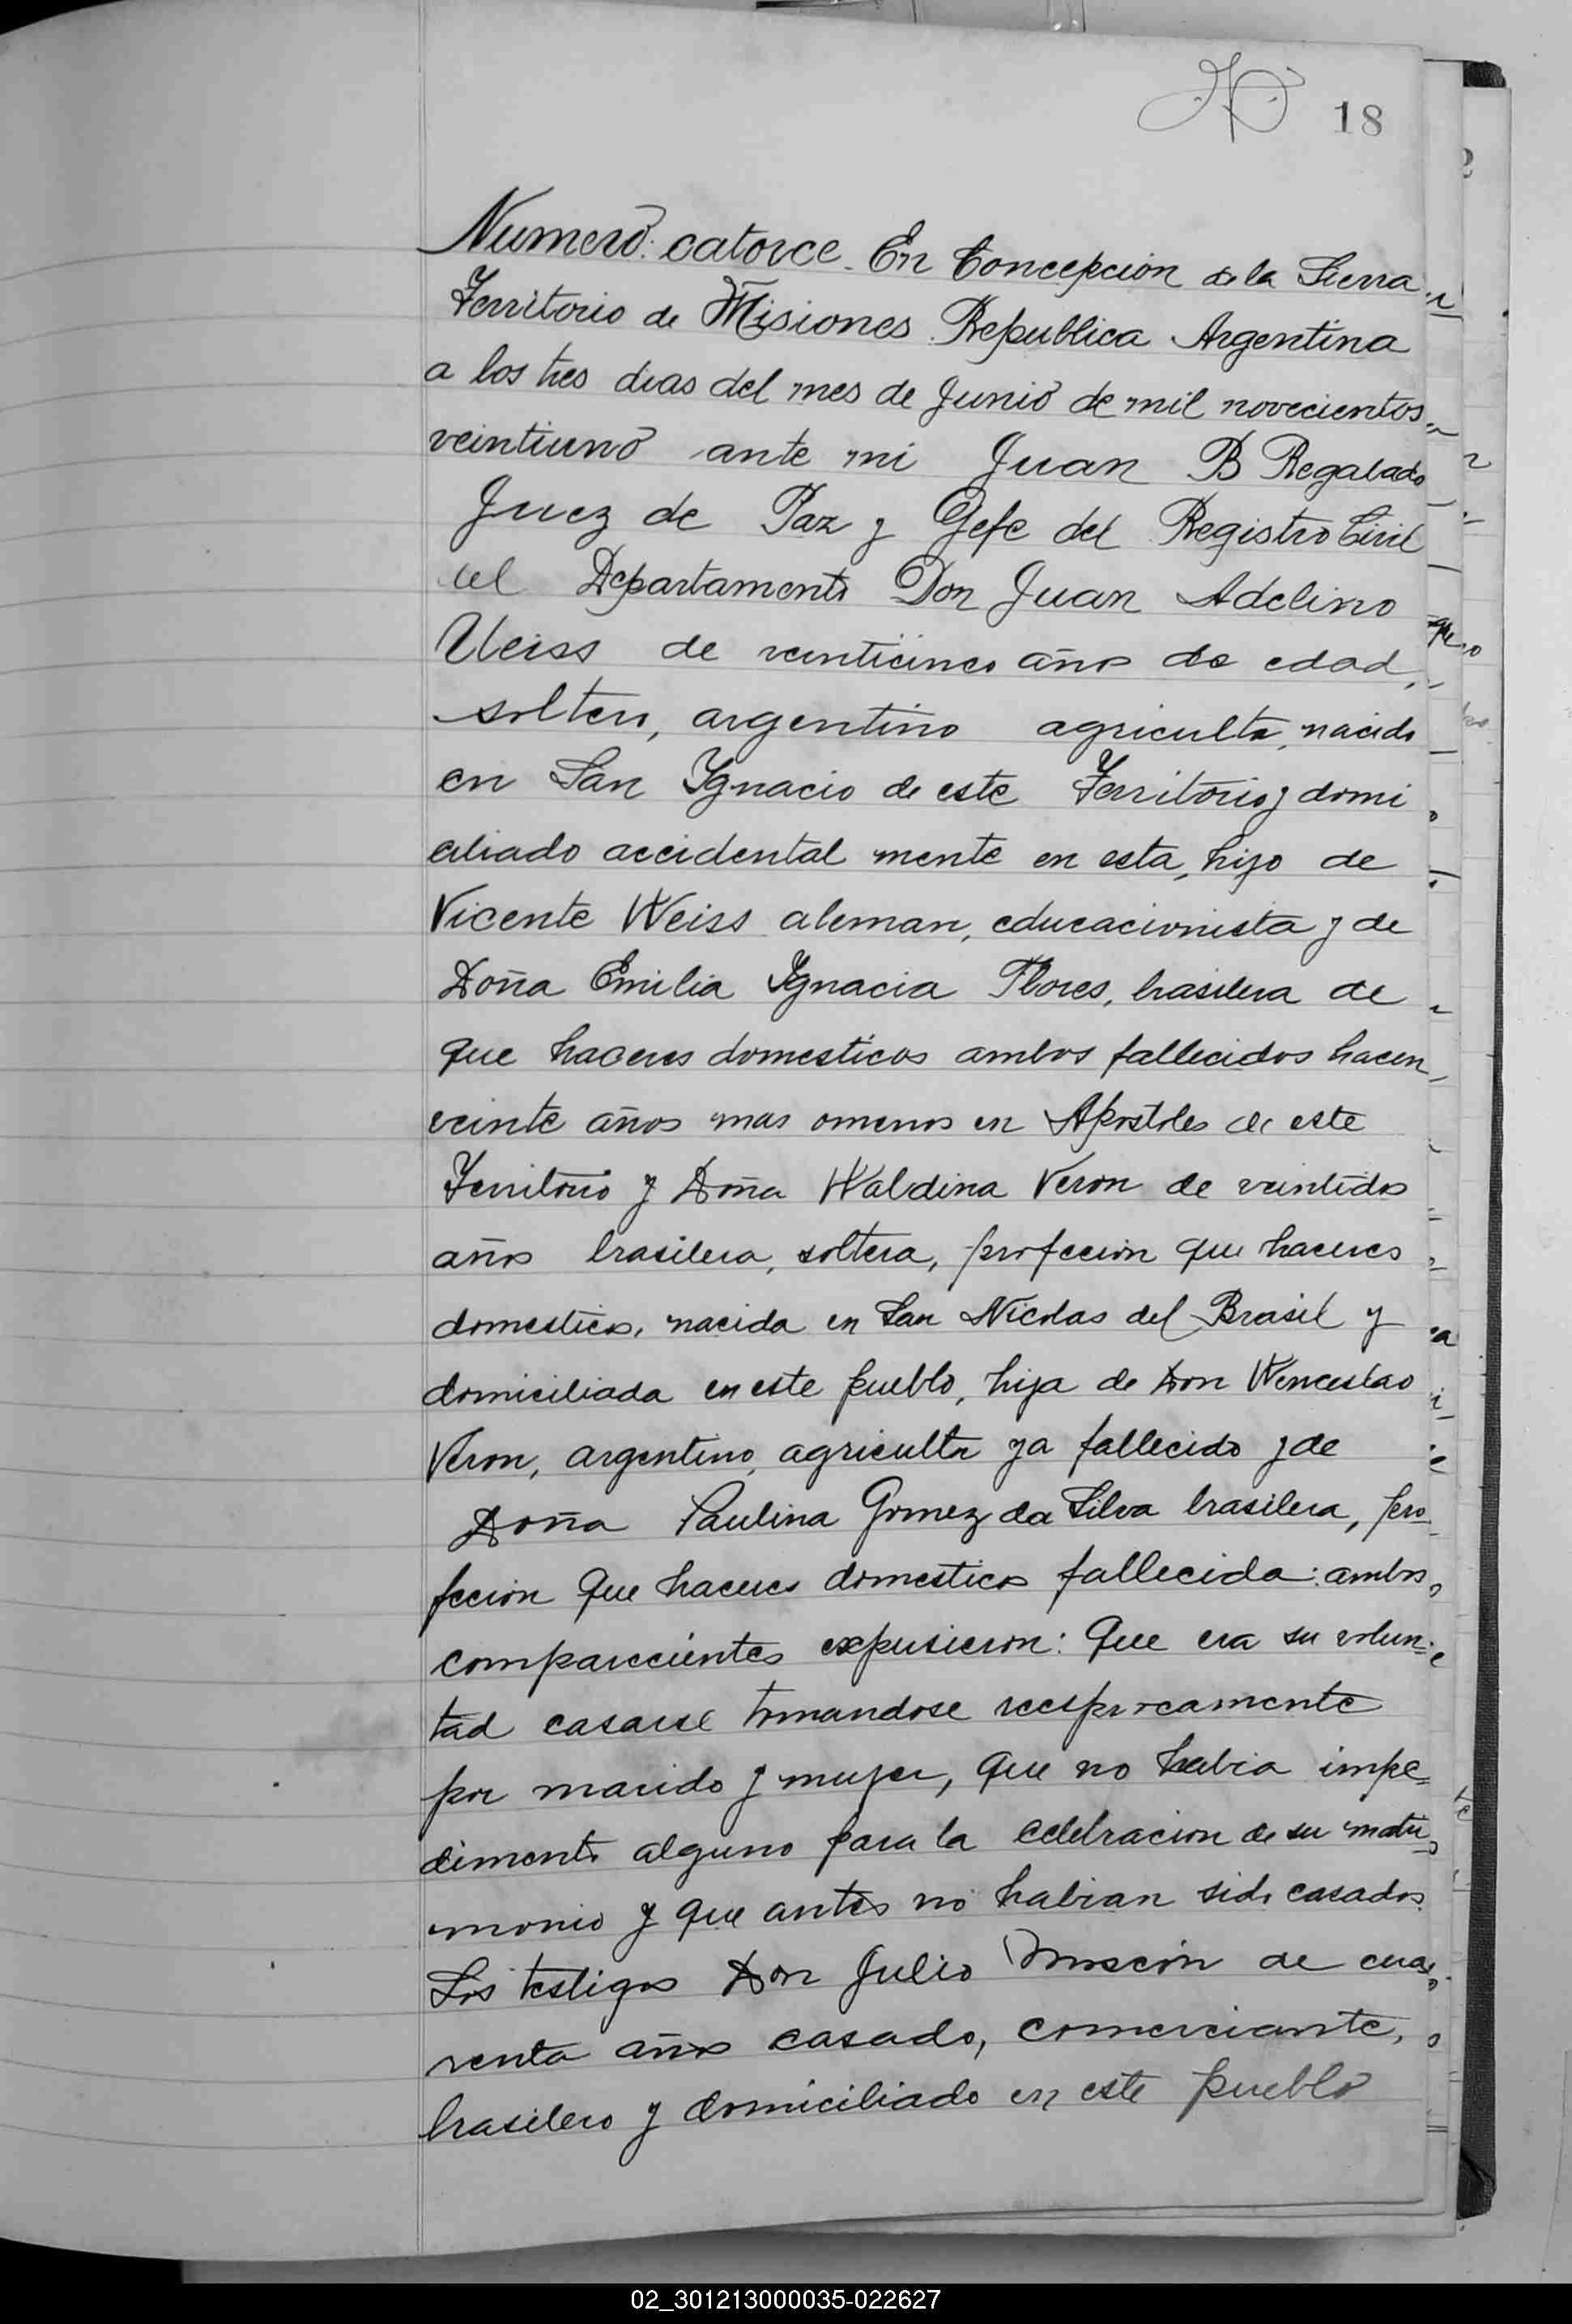 18
Numero: catorce. En Concepcion de la Sierra
Territorio de Misiones Republica Argentina
a los tres dias del mes de Junio de mil novecientos
veintiuno ante mi Juan B Regalado
Juez de Paz y Gefe del Registro Civil
del Departamento Don Juan Adelino
Weiss de veinticinco años de edad,
soltero, argentino agricultor, nacido
en San Ygnacio de este Territorio y domi
ciliado accidental mente en esta, hijo de
Vicente Weiss aleman, educacionista y de
Doña Emilia Ygnacia Flores, brasilera de
que haceres domesticos ambos fallecidos hacen
veinte años mas omenos en Apostoles de este
Territorio y Doña Waldina Veron de veintidos
años brasilera, soltera, profecion que haceres
domesticos, nacida en San Nicolas del Brasil y
domiciliada en este pueblo, hija de Don Wenceslao
Veron, argentino, agricultor ya fallecido y de
Doña Paulina Gomez da Silva brasilera, pro-
fecion que haceres domesticos fallecida: ambos
comparecientes expusieron: Que era su volun-
tad casarse tomandose recsprocamente
por marido y mujer, que no habia impe-
dimento alguno para la celebracion de su matri-
monio y que antes no habian sido casados.
Los testigos Don Julio de cua-
renta años casado, comerciante,
brasilero y domiciliado en este pueblo
02_301213000035-022627